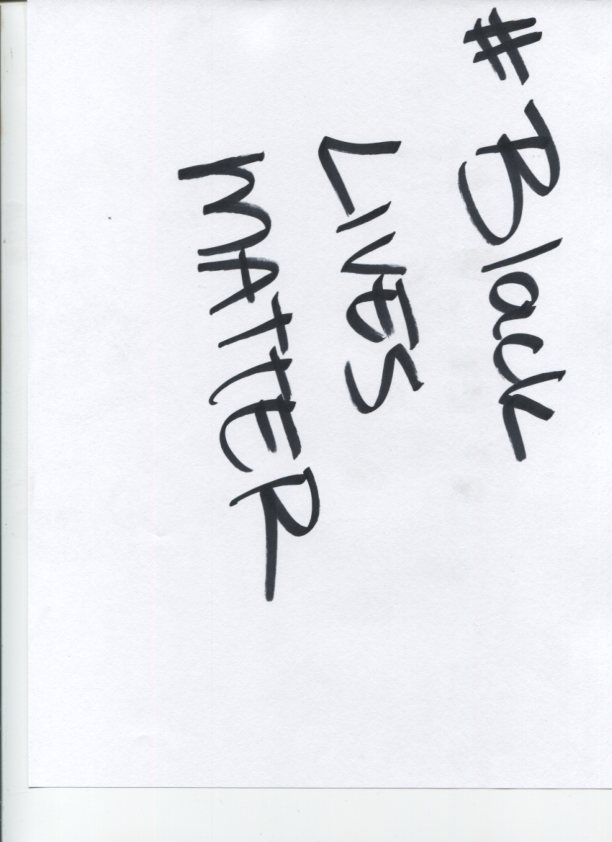 #Black
LIVES
MATTER